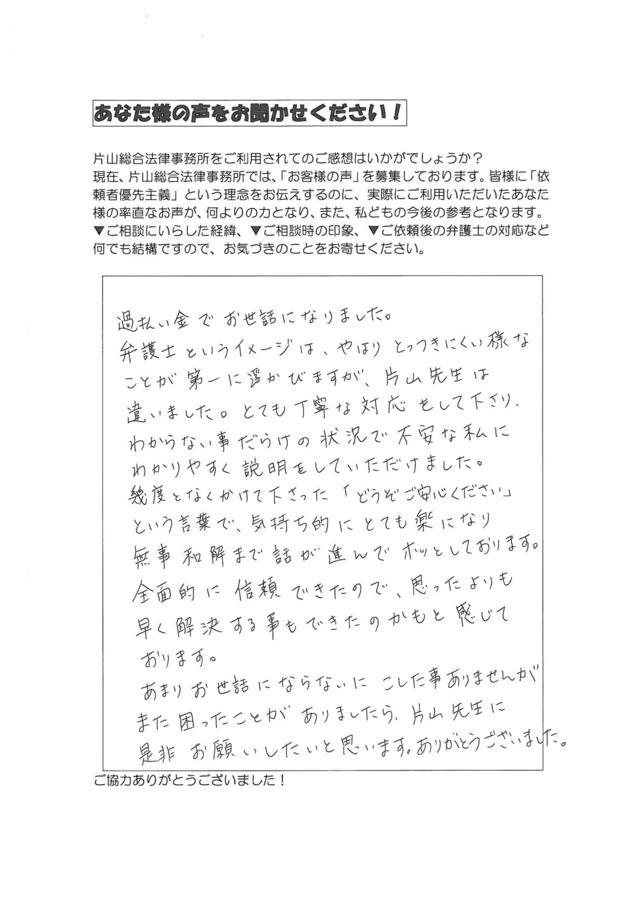 あなた様の声をお聞かせください！
片山総合法律事務所をご利用されてのご感想はいかがでしょうか？
現在、片山総合法律事務所では、「お客様の声」を募集しております。皆様に「依
頼者優先主義」という理念をお伝えするのに、実際にご利用いただいたあなた
様の率直なお声が、何よりの力となり、また、私どもの今後の参考となります。
▼ご相談にいらした経緯、▼ご相談時の印象、▼ご依頼後の弁護士の対応など
何でも結構ですので、お気づきのことをお寄せください。
過払い金でお世話になりました。
弁護士というイメージは、やはりとっつきにくい様な
ことが第一に浮かびますが、片山先生は
違いました。とても丁寧な対応をして下さり、
わからない事だらけの状況で不安な私に
わかりやすく説明をしていただけました。
幾度となくかけて下さった「どうぞご安心ください」
という言葉で、気持ち的にとても楽になり
無事和解まで話が進んでホッとしております。
全面的に信頼できたので、思ったよりも
早く解決する事もできたのかもと感じて
おります。
あまりお世話にならないにこした事ありませんが
また困ったことがありましたら、片山先生に
是非お願いしたいと思います。ありがとうございました。
ご協力ありがとうございました！